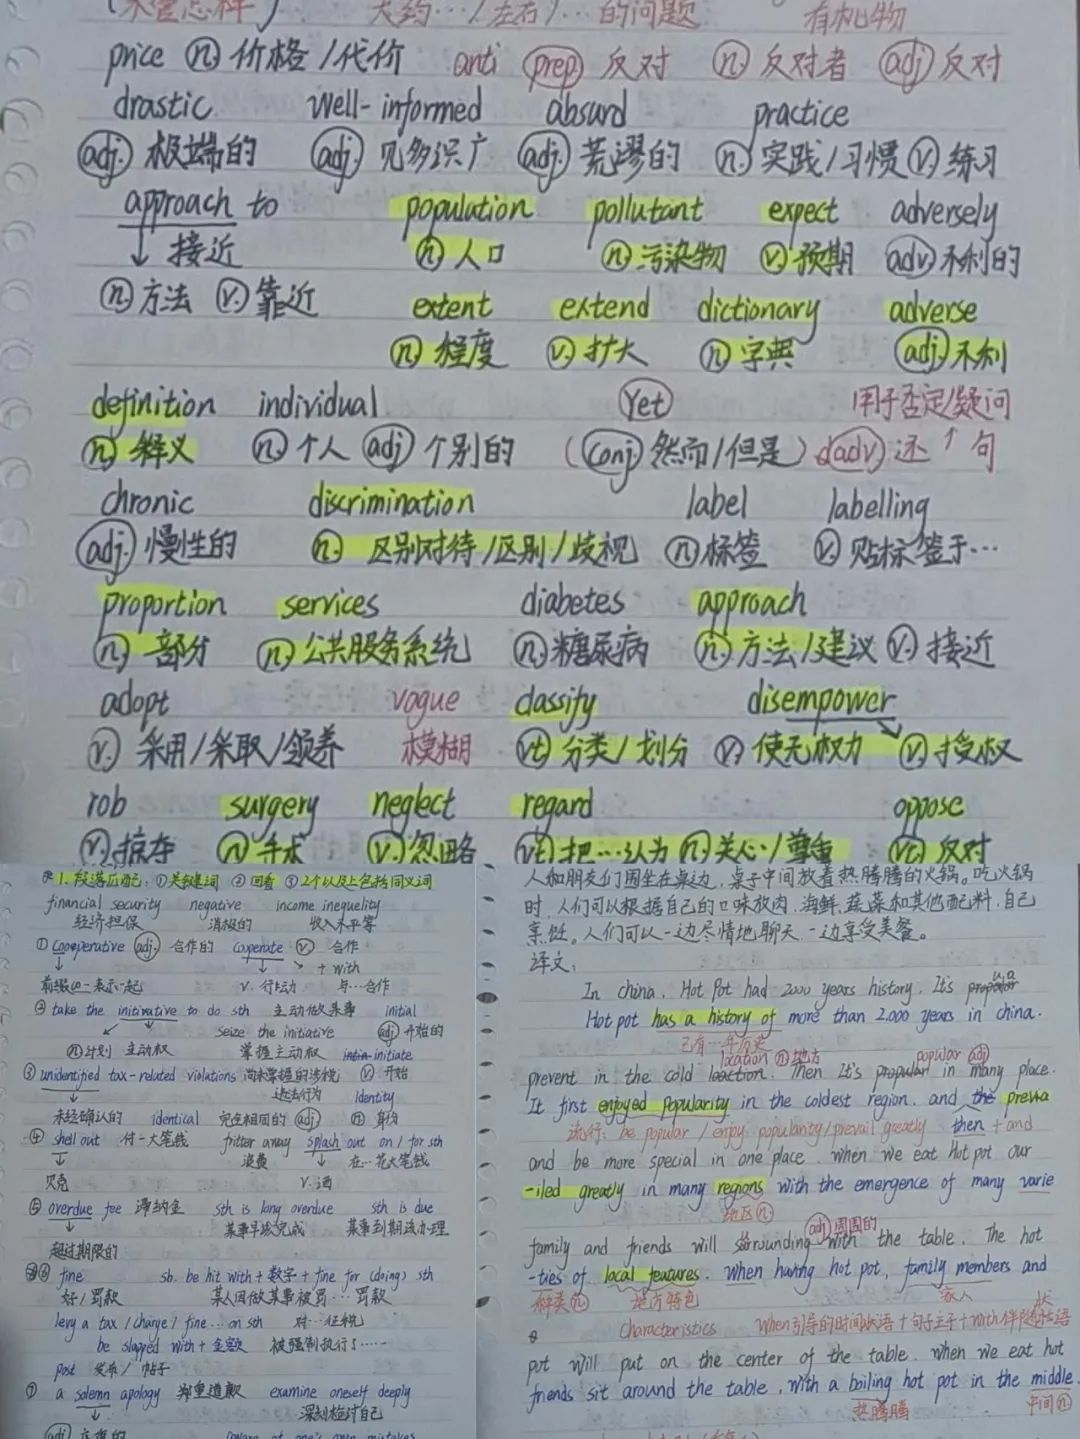 大约…/左右/…的问题 有机物
price n 价格/代价 anti prep 反对 n 反对者 adj 反对
drastic well-informed absurd practice
adj. 极端的 adj. 见多识广 adj. 荒谬的 n. 实践/习惯 v. 练习
approach to population pollutant expect adversely
↓ 接近 n 人口 n. 污染物 v. 预期 adv 不利的
n 方法 v. 靠近 extent extend dictionary adverse
n. 程度 v. 扩大 n. 字典 adj. 不利
definition individual Yet 用于否定/疑问
n. 释义 n. 个人 adj 个别的 (conj. 然而/但是) adv 还 ↑ 句
chronic discrimination label labelling
adj. 慢性的 n. 区别对待/区别/歧视 n 标签 v. 贴标签于…
proportion services diabetes approach
n. 部分 n. 公共服务系统 n. 糖尿病 n. 方法/建议 v. 接近
adopt vague classify disempower
v. 采用/采取/领养 模糊 vt 分类/划分 v. 使无权力 v. 授权
rob surgery neglect regard oppose
v. 掠夺 n 手术 v. 忽略 vt 把…认为 n 关心/尊重 vt. 反对
1. 段落匹配: ①关键词 ②回看 ③2个以及上包括同义词
financial security negative income inequality
经济担保 消极的 收入不平等
① cooperative adj. 合作的 cooperate v 合作
↓ ↓ ↘ + with
前缀co-表示一起 v. 行动 与…合作
② take the initirative to do sth 主动做某事 initial
seize the initiative adj 开始的
n 计划 主动权 掌握主动权 initiate
③ unidentified tax-related violations 尚未掌握的涉税 v 开始
违法行为 identity
未经确认的 identical 完全相同的 adj n 身份
④ shell out 付一大笔钱 fritter away splash out on / for sth
↓ 浪费 ↓ 在…花大笔钱
贝壳 v. 洒
⑤ overdue fee 滞纳金 sth is long overdue sth is due
↓ 某事早该完成 某事到期该办理
超过期限的
⑥ fine sb. be hit with + 数字 + fine for (doing) sth
好/罚款 某人因做某事被罚…罚款
levy a tax / charge / fine … on sth 对…征税
be slapped with + 金额 被强制执行了……
post 发布/帖子
⑦ a solemn apology 郑重道歉 examine oneself deeply
↓ 深刻检讨自己
人和朋友们围坐在桌边,桌子中间放着热腾腾的火锅。吃火锅
时,人们可以根据自己的口味放肉,海鲜,蔬菜和其他配料,自己
烹饪。人们可以一边尽情地聊天,一边享受美餐。
译文:
In china, Hot Pot had 2000 years history. It's
Hot pot has a history of more than 2.000 years in china.
已有…年历史
location n 地方 popular adj
prevent in the cold loaction. Then It's propular in many place.
It first enjoyed popularity in the coldest region. and the preva
流行: be popular / enjoy popularity / prevail greatly then + and
and be more special in one place. when we eat Hot pot our
-iled greatly in many regions with the emergence of many varie
地区 n adj 周围的
family and friends will sorrounding with the table. The hot
-ties of local features. When having hot pot, family members and
种类 n 地方特色 家人 状
characteristics When引导的时间状语+句子主干+with伴随状语
pot will put on the center of the table. when we eat hot
friends sit around the table, with a boiling hot pot in the middle.
热腾腾 中间 n